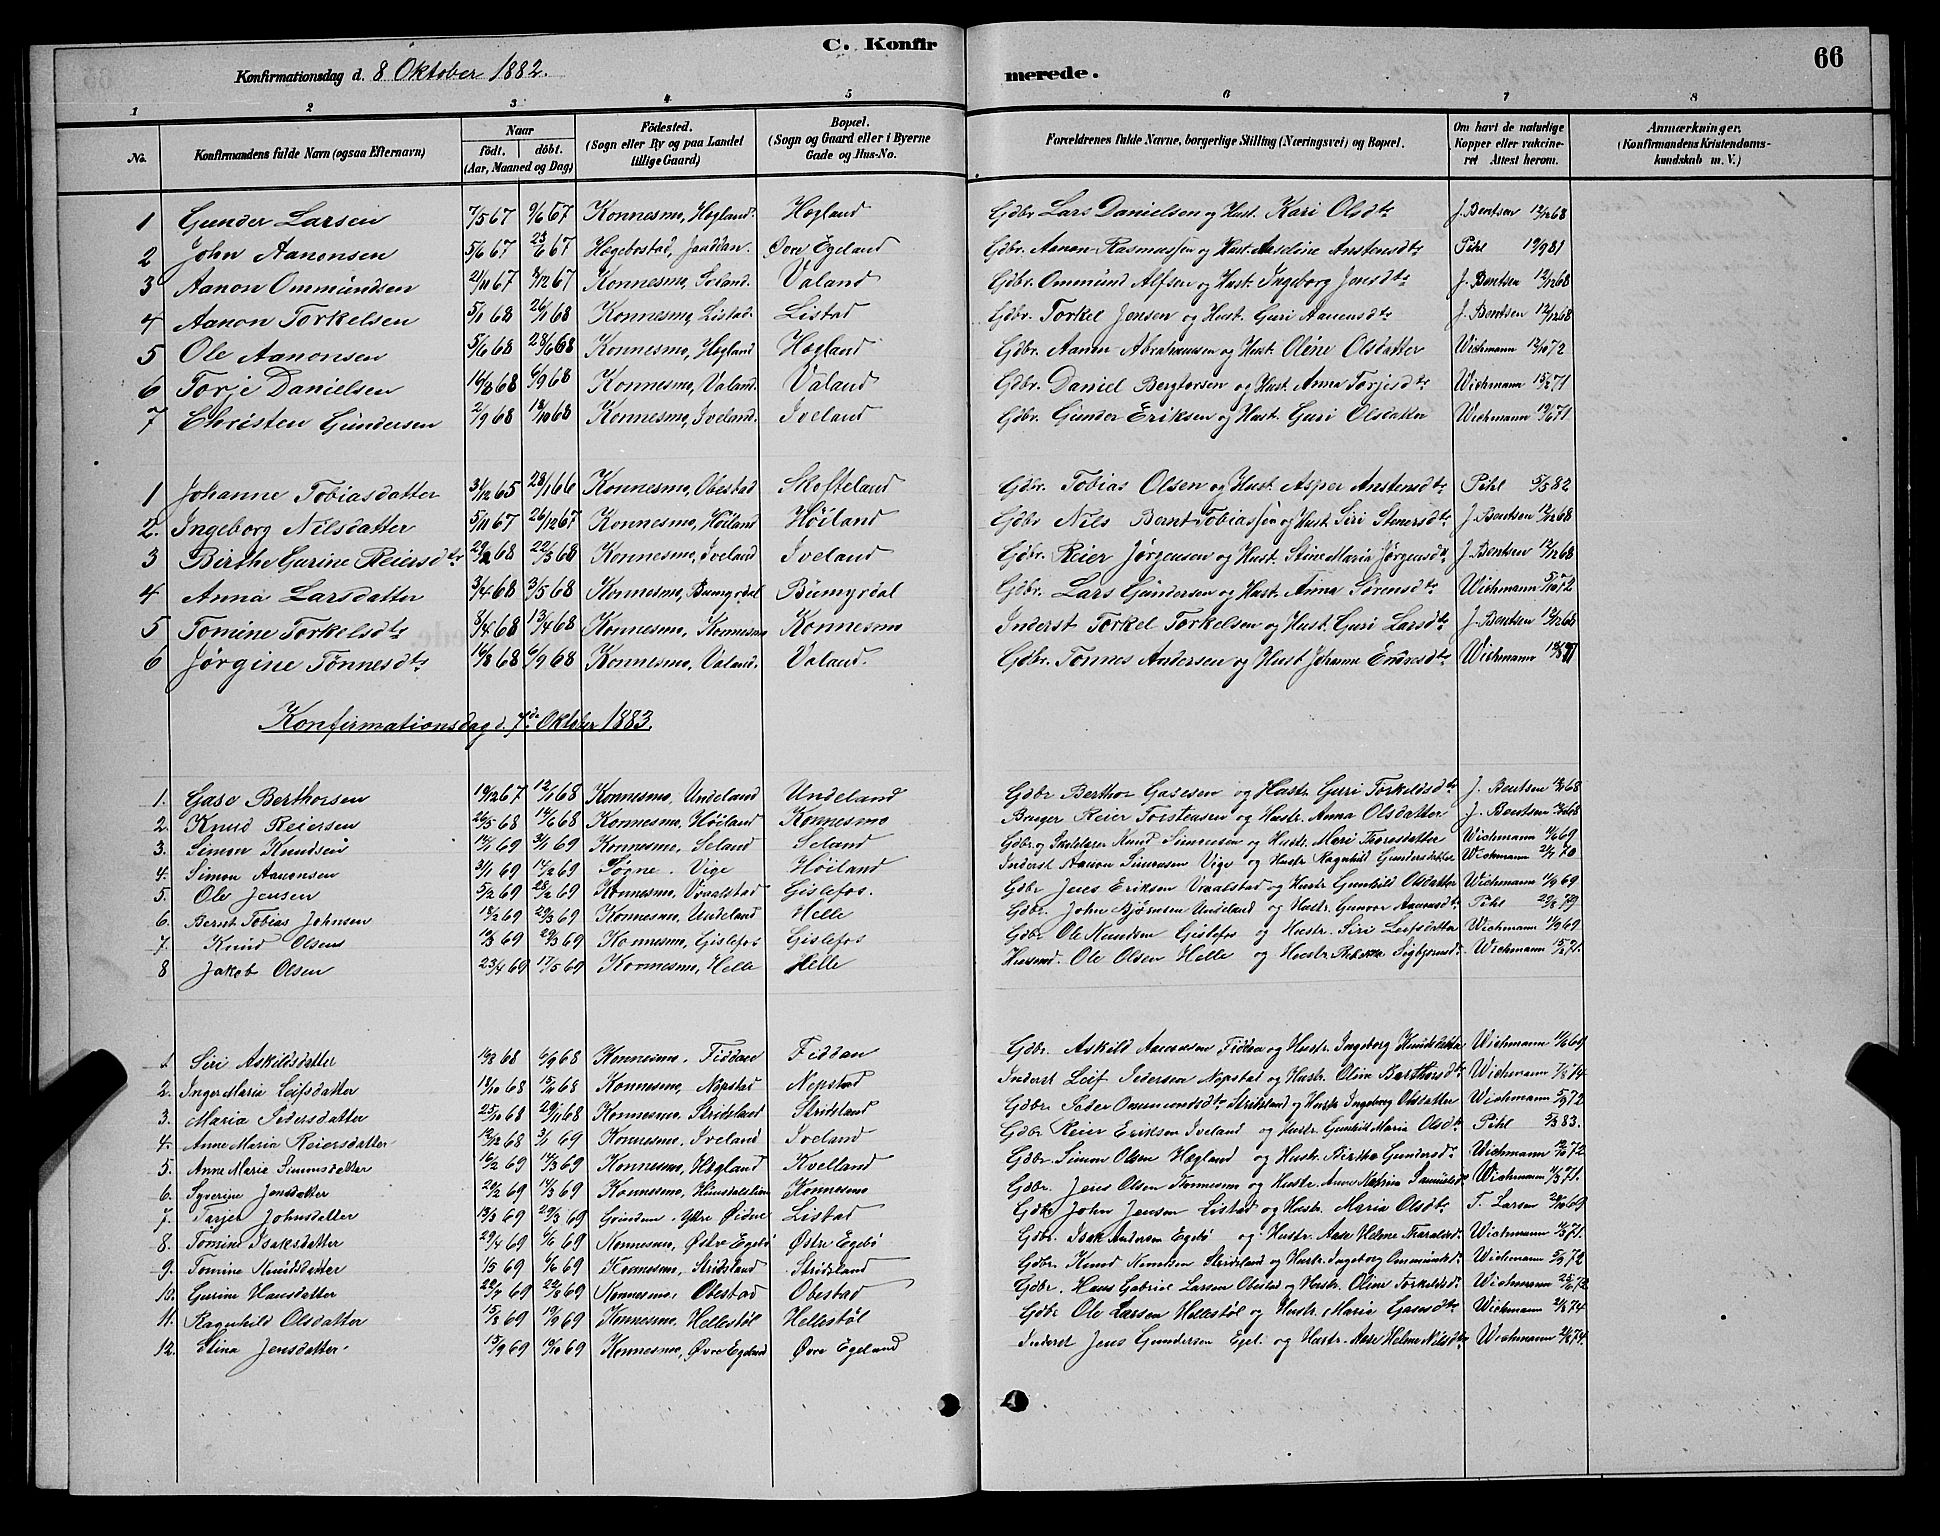 C. Konfirmerede.
66
Konfirmationsdag d. 8 Oktober 1882.
1 2 3 4 5 6 7 8
No. Konfirmandens fulde Navn (ogsaa Efternavn) Naar födt. döbt. (Aar, Maaned og Dag) Födested. (Sogn eller By og paa Landet tillige Gaard) Bopæl. (Sogn og Gaard eller i Byerne Gade og Hus-No. Forældrenes fulde Navne, borgerlige Stilling (Næringsvei) og Bopæl. Om havt de naturlige Kopper eller vakcineret Attest herom. Anmærkninger. (Konfirmandens Kristendomskundskab m. V.)
1 Gunder Larsen 7/5 67 9/6 67 Konnesmo, Høgland. Høgland Gdbr. Lars Danielsen og Hust. Kari Olsdtr J. Bentsen 12/12 68
2 John Aanonsen 5/6 67 23/6 67 Høgebostad, Øvre Egeland Gdbr. Aanon Rasmussen og Hust. Aseline Anstensdtr Pihl 19/9 81
3 Aanon Ommundsen 21/11 67 8/12 67 Konnesmo, Iveland. Valand Gdbr. Ommund Alfsen og Hust. Ingeborg Jonsdtr J. Bentsen 12/12 68
4 Aanon Torkelsen 5/1 68 26/1 68 Konnesmo, Listad. Listad Gdbr. Torkel Jensen og Hust. Guri Aanensdtr J. Bentsen 12/12 68
5 Ole Aanonsen 5/6 68 28/6 68 Konnesmo, Høgland Høgland Gdbr. Aanon Abrahamsen og Hust. Oline Olsdatter Wichmann 12/10 72
6 Torje Danielsen 16/8 68 6/9 68 Konnesmo, Valand. Valand Gdbr. Daniel Bergtorsen og Hust. Anna Torjesdtr Wichmann 15/6 71
7 Christen Gundersen 2/9 68 18/10 68 Konnesmo, Iveland. Iveland Gdbr. Gunder Eriksen og Hust. Guri Olsdatter Wichmann 19/6 71
1 Johanne Tobiasdatter 31/12 65 28/1 66 Konnesmo, Obestad Skofteland Gdbr. Tobias Olsen og Hust. Asper Anstensdtr Pihl 5/5 82
2. Ingeborg Nilsdatter 5/11 67 26/12 67 Konnesmo, Höiland Höiland Gdbr Nils Bernt Tobiassen og Hust. Siri Stenersdtr J. Bentsen 12/12 68
3 Birthe Gurine Reiersdtr 29/2 68 22/3 68 Konnesmo, Iveland Iveland Gdbr. Reier Jørgensen og Hust. Stine Maria Jørgensdtr J. Bentsen 12/12 68
4 Anna Larsdatter 3/4 68 3/5 68 Konnesmo, Bumyrdal Bumyrdal Gdbr. Lars Gundersen og Hust. Anna Sørensdtr Wichmann 5/10 72
5 Tomine Torkelsdtr 8/4 68 13/4 68 Konnesmo, Konnesmo Konnesmo Inderst Torkel Torkelsen og Hust. Guri Larsdtr J. Bentsen 12/12 68
6 Jørgine Tønnesdtr 16/8 68 6/9 68 Konnesmo, Valand. Valand. Gdbr. Tønnes Andersen og Hust Johanne Endresdtr Wichmann
Konfirmationsdag d. 7de Oktober 1883.
1. Gase Berthorsen 19/12 67 12/1 68 Konnesmo, Undeland Undeland Gdbr Berthor Gasesen og Hustr. Guri Torkelsdtr J. Bentsen 12/12 68
2. Knud Reiersen 26/5 68 14/6 68 Konnesmo, Höiland Konnesmo Bruger Reier Torstensen og Hustr. Anna Olsdatter J. Bentsen
3. Simon Knudsen 69 69 Konnesmo, Seland Seland Gdbr. og Skolelærer Knud Simonsen og Hustr. Mari Thoresdatter Wichmann 11/6 69
4. Simon Aanonsen 3/1 69 14/2 69 Søgne. Vige Höiland Inderst Aanon Simonsen Vige og Hustr Ragnhild Gundersdatter Wichmann 2/7 70
5. Ole Jensen 5/2 69 28/2 69 Konnesmo, Vraalstad Gislefos. Gdbr. Jens Eriksen Vraalstad og Hustr. Gunhild Olsdatter Wichmann 11/9 69
6. Bernt Tobias Johnsen 18/2 69 29/3 69 Konnesmo, Undeland Helle Gdbr. John Bjørnsen Undeland og Hustr. Gunvor Aanensdtr Pihl
7. Knud Olsen 10/3 69 29/3 69 Konnesmo, Gislefos Gislefos Gdbr Ole Knudsen Gislefos og Hustr. Siri Leifsdatter Wichmann 11/9 69
8 Jakob Olsen 23/4 69 17/5 69 Konnesmo, Helle Helle Ole Olsen Helle og Hustr. Rebekka Wichmann 15/6 71.
1. Siri Askildsdatter 68 6/9 68 Konnesmo. Fiddan Fiddan Gdbr. Askild Aanonsen Fiddan og Hustr. Ingeborg Knudsdatter Wichmann 11/6 69
2. Inger Maria Leifsdatter 18/10 68 15/11 68 Konnesmo, Nopstad Nopstad Inderst Leif Pedersen Nopstad og Hustr. Olina Berthorsdtr Wichmann 7/8 74
3. Maria Pedersdatter 25/10 68 29/11 68 Konnesmo, Stridsland Stridsland Gdbr Peder Ommundsdtr. Stridsland og Hustr Ingeborg Olsdatter Wichmann 5/9 72
4. Anne Maria Reiersdatter 12/12 68 3/1 69 Konnesmo. Iveland Iveland Gdbr Reier Eriksen Iveland og Hustr. Gunhild Maria Olsdtr Pihl 5/3 83.
5. Anne Marie Simonsdatter 16/2 69 14/3 69 Konnesmo, Høgland Kvelland Gdbr. Simon Olsen Høgland og Hustr. Birthe Gundersdr. Wichmann
6. Syverine Jensdatter 20/2 69 14/3 69 Konnesmo, Konnesmo Gdbr. Jens Olsen Konnesmo og Hustr. Anne Katrina Wichmann 11/3 71.
7. Tarjer Johnsdatter 13/3 69 29/3 69 Grindum. Ytre Øidne Listad Gdbr John Jensen Listad og Hustr. Maria Olsdtr T. Larsen
8. Tomine Isaksdatter 29/4 69 6/6 69 Konnesmo, Østre Egebø Østre Egebø Gdbr. Isak Andersen Egebø og Hustr. Aase Helene Wichmann
9. Tomine Knudsdatter 1/5 69 6/6 69 Konnesmo. Stridsland Stridsland Gdbr. Knud Stridsland og Hustr. Ingeborg Ommundsdr Wichmann 5/9 72
10. Gurine Hansdatter 22/7 69 22/8 69 Konnesmo. Obestad Obestad Gdbr. Hans Gabriel Larsen Obestad og Hustr. Olina Torkelsdr. Wichmann
11. Ragnhild Olsdatter 15/8 69 19/9 69 Konnesmo, Hellestøl Hellestøl Gdbr Ole Larsen Hellestøl og Hustr. Maria Gasesdtr Wichmann 2/8 74
12. Stina Jensdatter. 15/9 69 10/10 69 Konnesmo, Øvre Egeland Øvre Egeland Inderst Jens Gundersen Egel. og Hustr. Aase Helene Nilsdtr Wichmann 2/8 74.